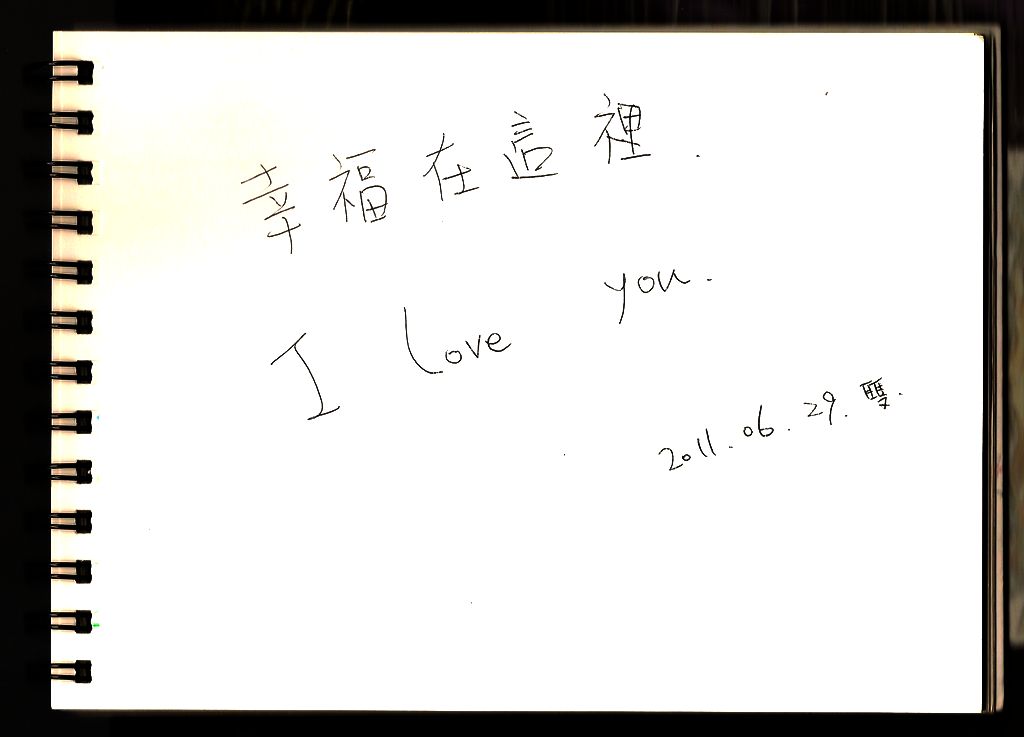 幸福在這裡.
I love you.
2011.06.29.雙.